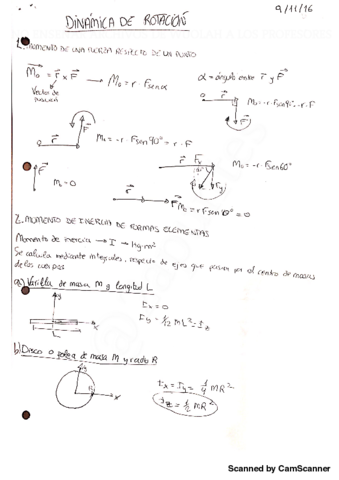 9/11/16
DINÁMICA DE ROTACIÓN
1. MOMENTO DE UNA FUERZA RESPECTO DE UN PUNTO
M₀ = r x F → M₀ = r · F senα α = ángulo entre r y F
Vector de
r M₀ = -r · F sen 90° = -r · F
F
r F M₀ = -r · F sen 90° = r · F
r Fx M₀ = -r · F sen 60°
F Fy
F M₀ = 0
r F M₀ = r F sen 0° = 0
2. MOMENTO DE INERCIA DE FORMAS ELEMENTALES
Momento de inercia → I → kg·m²
Se calcula mediante integrales, respecto de ejes que pasan por el centro de masas
de los cuerpos
a) Varilla de masa M y longitud L
y
Ix = 0
x Iy = 1/12 ML² = Iz
L
b) Disco o polea de masa M y radio R
y
Ix = Iy = 1/4 MR²
R x
Iz = 1/2 MR²
Scanned by CamScanner